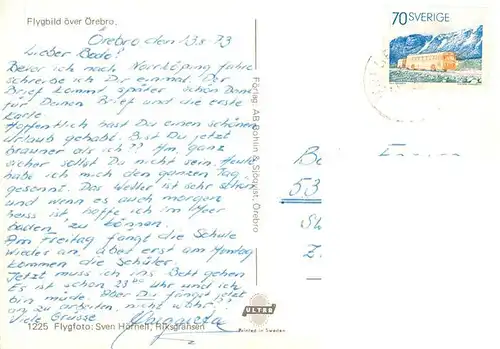 Flygbild över Örebro.
Örebro den 13.8 73
Lieber Bodo!
Bevor ich nach Norrköping fahre
schreibe ich Dir einmal. Der
Brief kommt später schön Dank
für Deinen Brief und die erste
Karte.
Hoffentlich hast Du einen schönen
Urlaub gehabt. Bist Du jetzt
brauner als ich?? Am ganz
sicher sollst Du nicht sein. Heute
habe ich mich den ganzen Tag
gesonnt. Das Wetter ist sehr schön
und wenn es auch morgen
heiss ist, hoffe ich im Meer
baden zu können.
Am Freitag fängt die Schule
wieder an, aber erst am Montag
kommen die Schüler.
Jetzt muss ich ins Bett gehen
Es ist schon 23 00 Uhr und ich
bin müde. Aber Du fängst jetzt
an zu arbeiten, nicht wahr?
Viele Grüsse
Margareta
1225 Flygfoto: Sven Hörnell, Riksgränsen
Förlag: AB Bohlin & Sjöqvist, Örebro
70 SVERIGE
53
ULTRA
Printed in Sweden